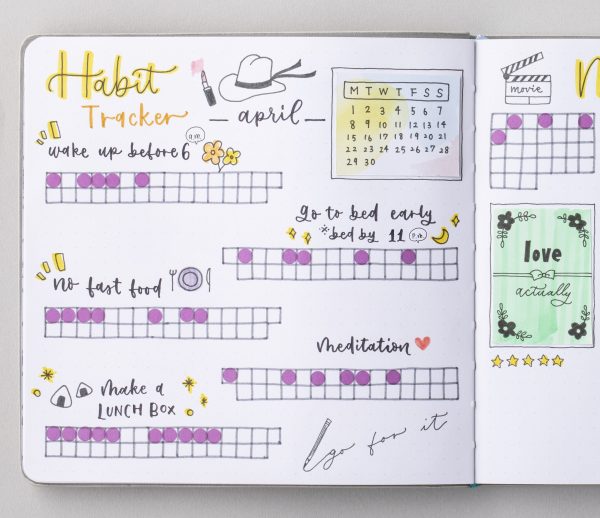 Habit
Tracker
april
M T W T F S S
1 2 3 4 5 6 7
8 9 10 11 12 13 14
15 16 17 18 19 20 21
22 23 24 25 26 27 28
29 30
wake up before 6 a.m.
go to bed early
*bed by 11 p.m.
no fast food
meditation
make a
LUNCH BOX
go for it
movie
love
actually